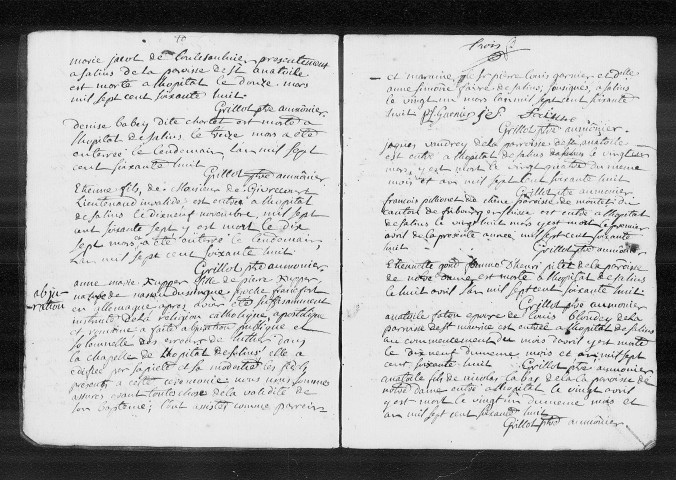 marie jacot de Coulesaulnier presentement
a salins de la paroise de st anatoile
est morte a lhopital ce douze mars
mil sept cens soixante huit
Grillot ptre aumônier.
denise babey dite chorlet est morte a
lhopital de salins le treize mars a été
enterrée le lendemain lan mil sept
cent soixante huit
Grillot ptre aumônier
Etienne fils de Monsieur de
Lieutenand invalide est entré a lhopital
de salins le dixneuf novembre mil sept
cent soixante sept y est mort le dix
sept mars a été enterré le lendemain
lan mil sept cent soixante huit
Grillot ptre aumonier
abju
ration
anne marie fille de pierre
native de proche francfort
en allemagne apres avoir été suffisamment
instruite de la religion catholique apostolique
et romaine a faite abjuration publique et
solemnelle des erreurs de luther dans
la chapelle de lhopital de salins elle a
édifiée par sa pieté et sa modestie les
presents a cette ceremonie nous nous sommes
assurés avant toute chose de la validité de
son baptême; l'ont assistée comme parrein
trois
et maraine, le sr pierre louis garnier et dlle
anne simone faivre de salins, soussignés, a salins
le vingt un mars lan mil sept cent soixante
huit pl garnier
Grillot ptre aumônier.
jaques de la paroisse de st anatoile
est entré a lhopital de salins le vingt
mars, y est mort le vingt quatre du meme
mois et an mil sept cent soixante huit
Grillot ptre aumonier
françois de paroise de
canton de fribourg en suisse est entré a lhopital
de salins le vingt huit mars y est mort le premier
avril de la presente annee mil sept cent soixante
huit Grillot ptre aumonier
Etiennette femme d'henri pilet de la paroise
de notre dame est morte a lhopital de salins
le huit avril lan mil sept cent soixante huit
Grillot ptre aumonier
anatoile faton epouse de louis blondey de la
paroise de st maurice est entrée a lhopital de salins
au commencement du mois davril y est morte
le dixneuf du meme mois et an mil sept
cent soixante huit Grillot ptre aumonier
anatoile fils de nicolas labbey de la paroise de
notre dame entré a lhopital le vingt avril
y est mort le vingt un du meme mois et
an mil sept cent soixante huit
Grillot ptre aumônier